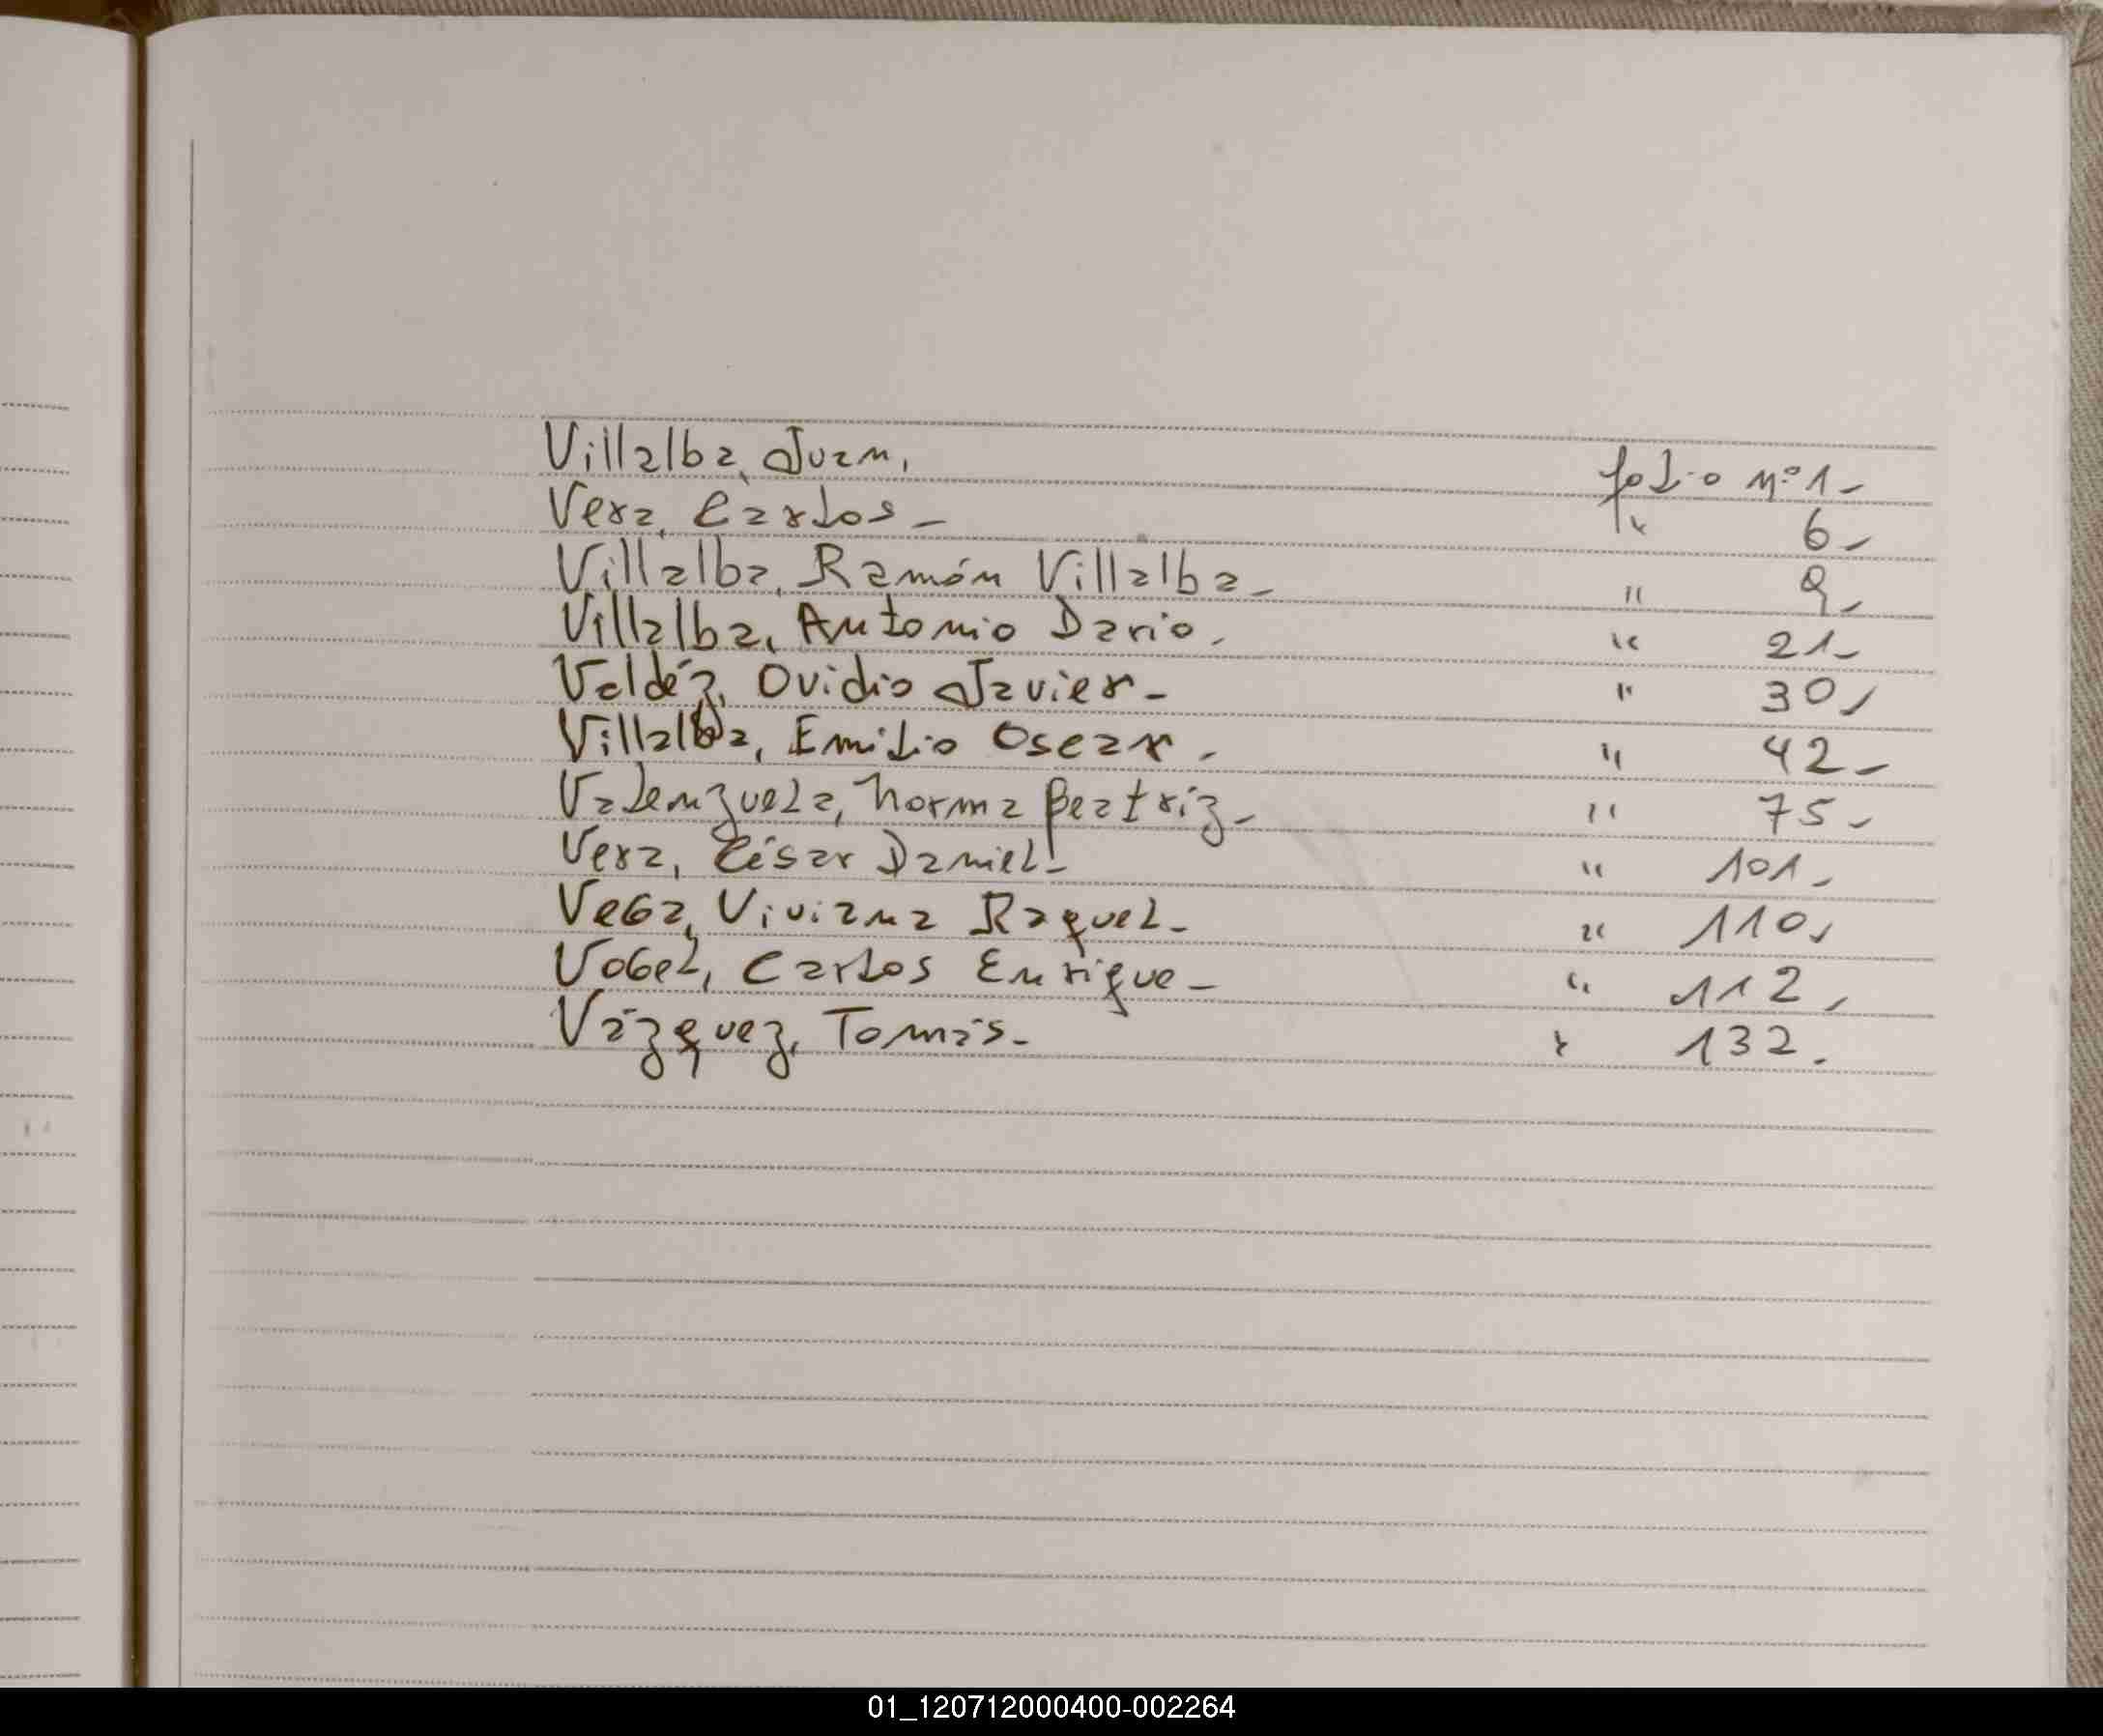 Villalba, Juan. folio nº 1-
Vera, Carlos- " 6-
Villalba, Ramón Villalba- " 9-
Villalba, Antonio Dario. " 21-
Valdéz, Ovidio Javier- " 30-
Villalba, Emilio Oscar. " 42-
Valenzuela, Norma Beatríz- " 75-
Vera, César Daniel- " 101-
Vega, Viviana Raquel- " 110-
Vogel, Carlos Enrique- " 112-
Vázquez, Tomás- " 132.
01_120712000400-002264